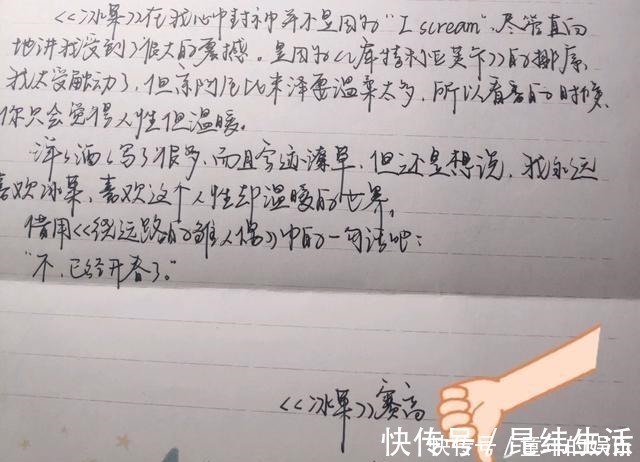 《冰菓》在我心中封神并不是因为"I scream",尽管直白
地讲我受到了很大的震撼。是因为《库特利亚芙卡》的排序,
我太受触动了,但京阿尼比米泽要温柔太多,所以看番的时候,
你只会觉得人性但温暖。
洋洋洒洒写了很多,而且字迹潦草,但还是想说,我永远
喜欢冰菓,喜欢这个人性却温暖的世界,
借用《绕远路的雏人偶》中的一句话吧:
"不,已经开春了。"
《冰菓》赛高
快传号/星纬生活